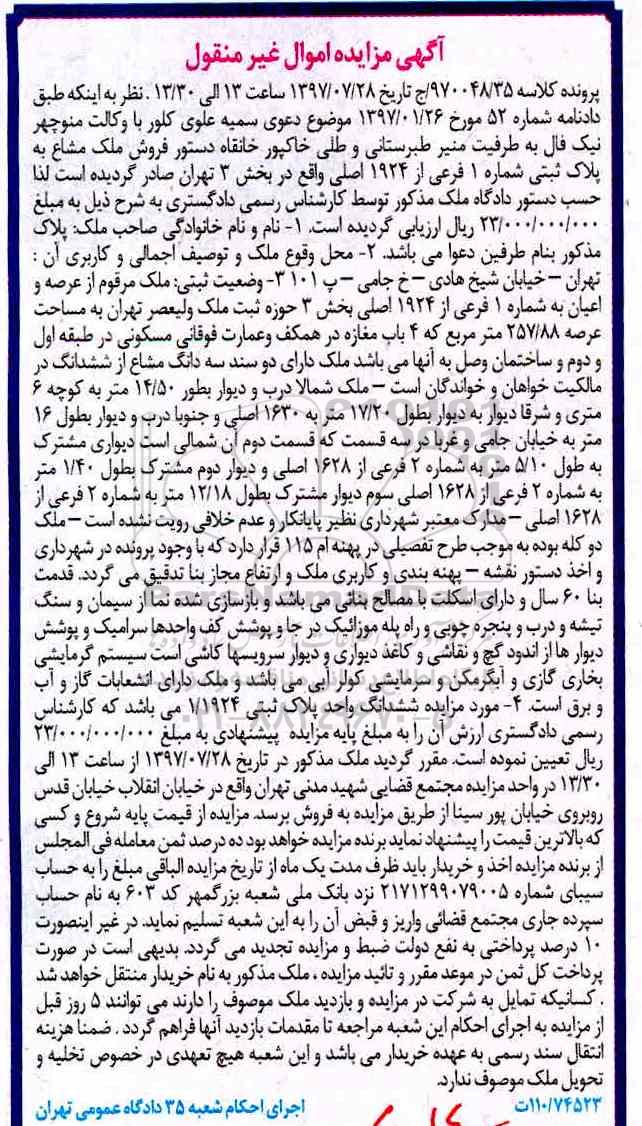 آگهی مزایده اموال غیر منقول
پرونده کلاسه ۹۷۰۰۴۸/۳۵/ج تاریخ ۱۳۹۷/۰۷/۲۸ ساعت ۱۳ الی ۱۳/۳۰ . نظر به اینکه طبق
دادنامه شماره ۵۲ مورخ ۱۳۹۷/۰۱/۲۶ موضوع دعوی سمیه علوی کلور با وکالت منوچهر
نیک فال به طرفیت منیر طبرستانی و طلی خاکپور خانقاه دستور فروش ملک مشاع به
پلاک ثبتی شماره ۱ فرعی از ۱۹۲۴ اصلی واقع در بخش ۳ تهران صادر گردیده است لذا
حسب دستور دادگاه ملک مذکور توسط کارشناس رسمی دادگستری به شرح ذیل به مبلغ
۲۳/۰۰۰/۰۰۰/۰۰۰ ریال ارزیابی گردیده است. ۱- نام و نام خانوادگی صاحب ملک: پلاک
مذکور بنام طرفین دعوا می باشد. ۲- محل وقوع ملک و توصیف اجمالی و کاربری آن :
تهران – خیابان شیخ هادی – خ جامی – پ ۱۰۱ ۳- وضعیت ثبتی: ملک مرقوم از عرصه و
اعیان به شماره ۱ فرعی از ۱۹۲۴ اصلی بخش ۳ حوزه ثبت ملک ولیعصر تهران به مساحت
عرصه ۲۵۷/۸۸ متر مربع که ۴ باب مغازه در همکف وعمارت فوقانی مسکونی در طبقه اول
و دوم و ساختمان وصل به آنها می باشد ملک دارای دو سند سه دانگ مشاع از ششدانگ در
مالکیت خواهان و خواندگان است – ملک شمالا درب و دیوار بطور ۱۴/۵۰ متر به کوچه ۶
متری و شرقا دیوار به دیوار بطول ۱۷/۲۰ متر به ۱۶۳۰ اصلی و جنوبا درب و دیوار بطول ۱۶
متر به خیابان جامی و غربا در سه قسمت که قسمت دوم آن شمالی است دیواری مشترک
به طول ۵/۱۰ متر به شماره ۲ فرعی از ۱۶۲۸ اصلی و دیوار دوم مشترک بطول ۱/۴۰ متر
به شماره ۲ فرعی از ۱۶۲۸ اصلی سوم دیوار مشترک بطول ۱۲/۱۸ متر به شماره ۲ فرعی از
۱۶۲۸ اصلی – مدارک معتبر شهرداری نظیر پایانکار و عدم خلافی رویت نشده است – ملک
دو کله بوده به موجب طرح تفصیلی در پهنه ام ۱۱۵ قرار دارد که با وجود پرونده در شهرداری
و اخذ دستور نقشه – پهنه بندی و کاربری ملک و ارتفاع مجاز بنا تدقیق می گردد. قدمت
بنا ۶۰ سال و دارای اسکلت با مصالح بنائی می باشد و بازسازی شده نما از سیمان و سنگ
تیشه و درب و پنجره چوبی و راه پله موزائیک در جا و پوشش کف واحدها سرامیک و پوشش
دیوار ها از اندود گچ و نقاشی و کاغذ دیواری و دیوار سرویسها کاشی است سیستم گرمایشی
بخاری گازی و آبگرمکن و سرمایشی کولر آبی می باشد و ملک دارای انشعابات گاز و آب
و برق است. ۴- مورد مزایده ششدانگ واحد پلاک ثبتی ۱/۱۹۲۴ می باشد که کارشناس
رسمی دادگستری ارزش آن را به مبلغ پایه مزایده پیشنهادی به مبلغ ۲۳/۰۰۰/۰۰۰/۰۰۰
ریال تعیین نموده است. مقرر گردید ملک مذکور در تاریخ ۱۳۹۷/۰۷/۲۸ از ساعت ۱۳ الی
۱۳/۳۰ در واحد مزایده مجتمع قضایی شهید مدنی تهران واقع در خیابان انقلاب خیابان قدس
روبروی خیابان پور سینا از طریق مزایده به فروش برسد. مزایده از قیمت پایه شروع و کسی
که بالاترین قیمت را پیشنهاد نماید برنده مزایده خواهد بود ده درصد ثمن معامله فی المجلس
از برنده مزایده اخذ و خریدار باید ظرف مدت یک ماه از تاریخ مزایده الباقی مبلغ را به حساب
سیبای شماره ۲۱۷۱۲۹۹۰۷۹۰۰۵ نزد بانک ملی شعبه بزرگمهر کد ۶۰۳ به نام حساب
سپرده جاری مجتمع قضائی واریز و قبض آن را به این شعبه تسلیم نماید. در غیر اینصورت
۱۰ درصد پرداختی به نفع دولت ضبط و مزایده تجدید می گردد. بدیهی است در صورت
پرداخت کل ثمن در موعد مقرر و تائید مزایده ، ملک مذکور به نام خریدار منتقل خواهد شد
. کسانیکه تمایل به شرکت در مزایده و بازدید ملک موصوف را دارند می توانند ۵ روز قبل
از مزایده به اجرای احکام این شعبه مراجعه تا مقدمات بازدید آنها فراهم گردد . ضمنا هزینه
انتقال سند رسمی به عهده خریدار می باشد و این شعبه هیچ تعهدی در خصوص تخلیه و
تحویل ملک موصوف ندارد.
۱۱۰/۷۴۵۲۳ت اجرای احکام شعبه ۳۵ دادگاه عمومی تهران